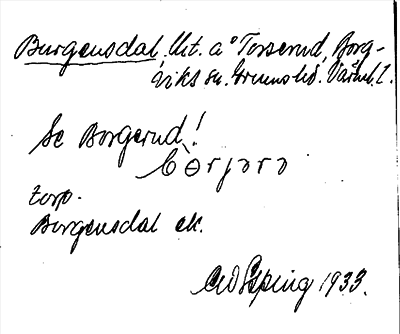 Burgensdal. Ut. a° Torserud, Borg-
viks sn. Grums hd. Värml. l.
Se Borgerud!
torp.
Borgensdal ek.
1933.